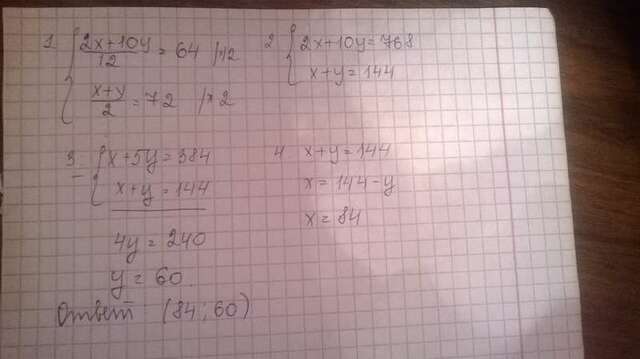 1 { (2x+10y)/12 = 64 |·12
(x+y)/2 = 72 |·2
2 { 2x+10y=768
x+y=144
3 { x+5y=384
− x+y=144
4y=240
y=60.
4 x+y=144
x=144-y
x=84
Ответ: (84;60)